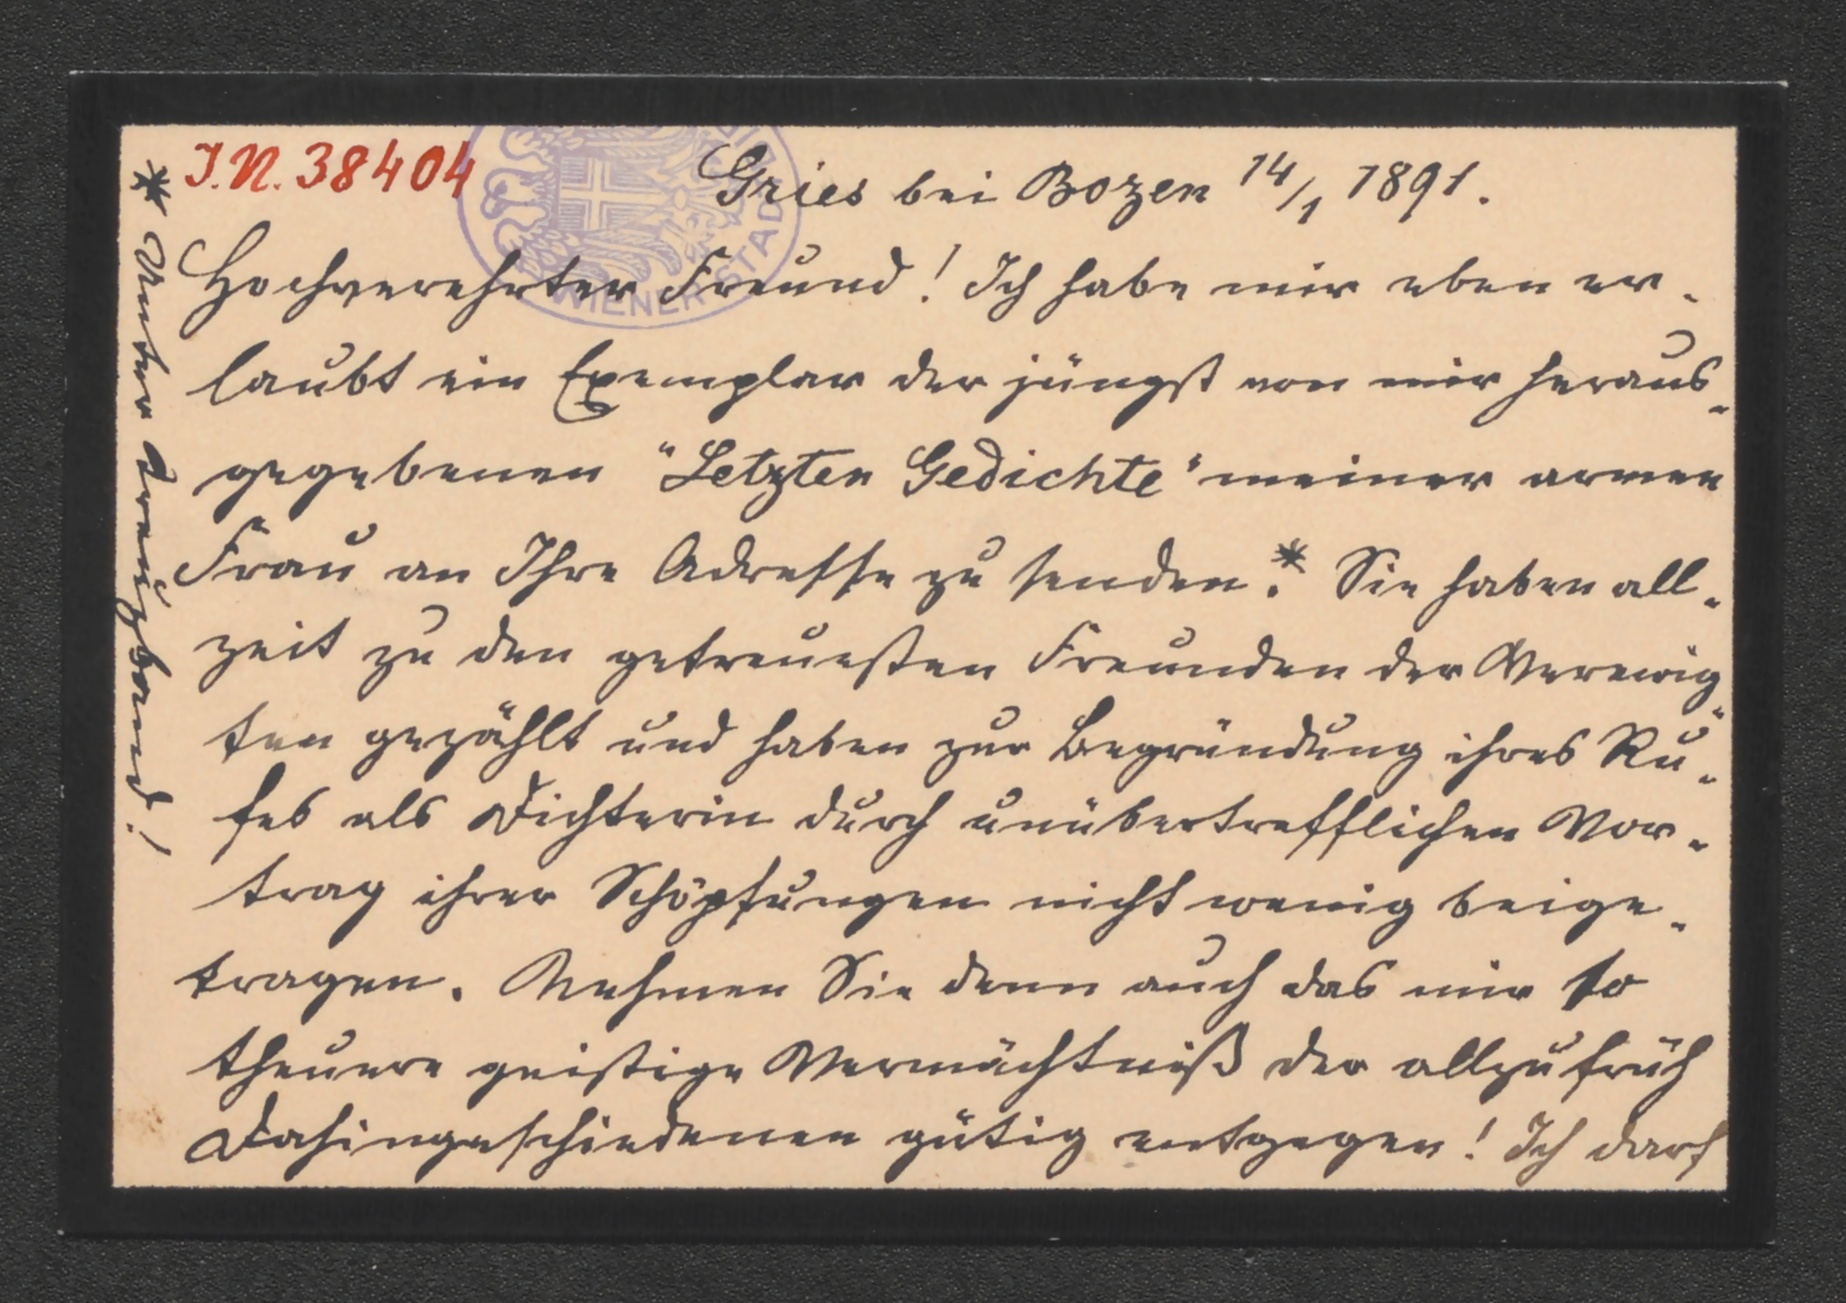 I.N. 38404
Gries bei Bozen 14/1 1891.
Hochverehrter Freund! Ich habe mir eben er-
laubt ein Exemplar der jüngst von mir heraus-
gegebenen "Letzten Gedichte" meiner armen
Frau an Ihre Adresse zu senden.* Sie haben all-
zeit zu den getreuesten Freunden der Verewig-
ten gezählt und haben zur Begründung ihres Ru-
fes als Dichterin durch unübertrefflichen Vor-
trag ihrer Schöpfungen nicht wenig beige-
tragen. Nehmen Sie denn auch das mir so
theuere geistige Vermächtniß der allzufrüh
Dahingeschiedenen gütig entgegen! Ich darf
* Unter Kreuzband!
WIENER STAD